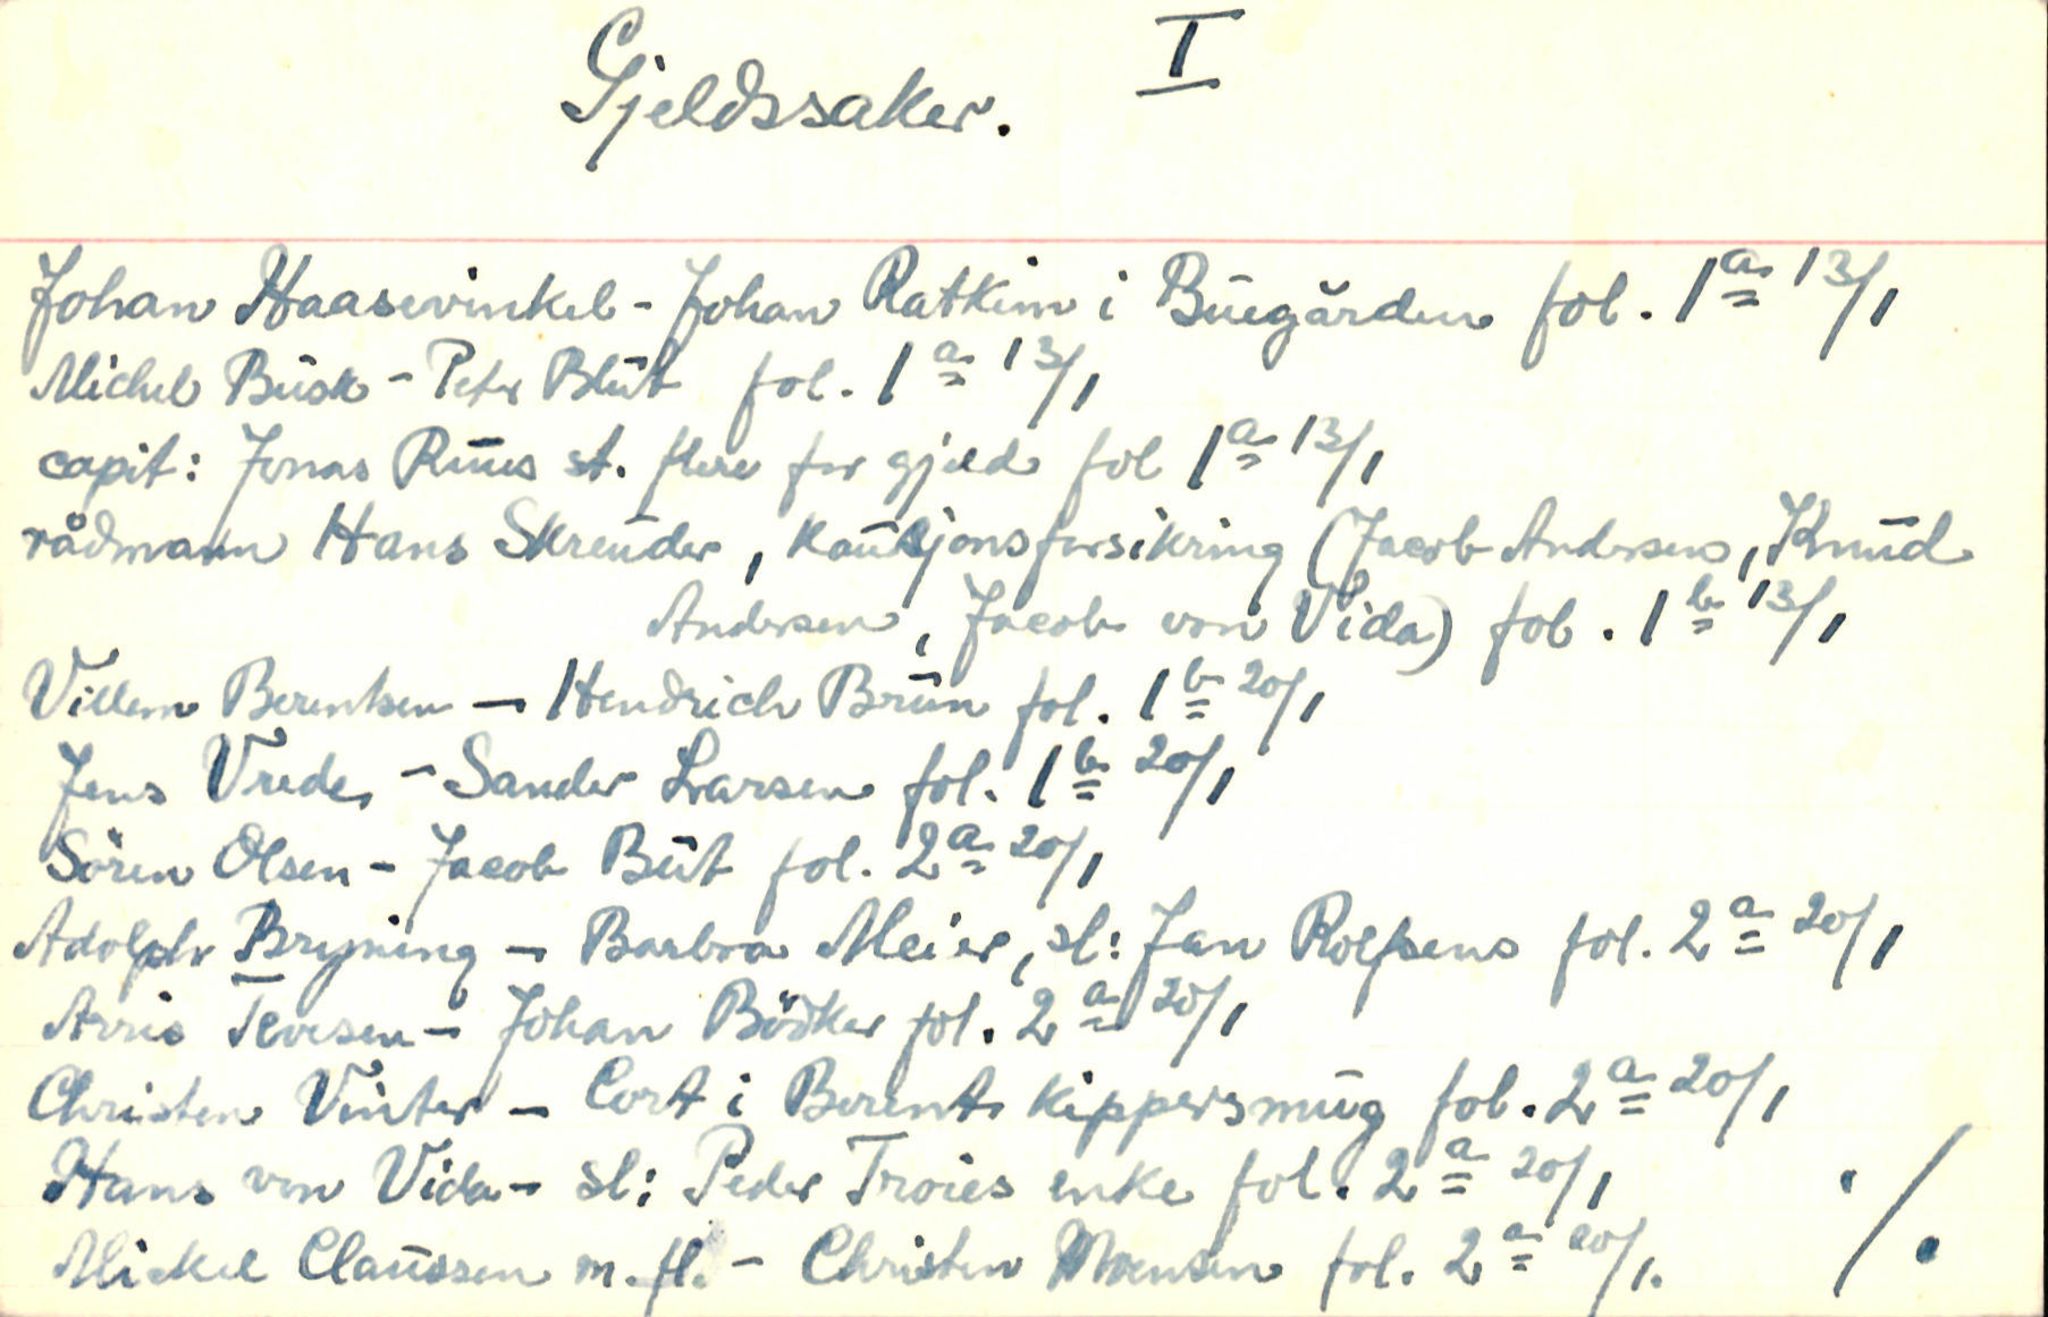 Gjeldssaker. I
Johan Haasewinkel - Johan Ratkim i Buegården fol. 1a 13/1
Michel Busk - Peter Blut fol. 1a 13/1
capit: Jonas Ruus st. flere for gjeld fol 1a 13/1
rådmann Hans Skreuder, kautjonsforsikring (Jacob Andersens, Knud
Andersen, Jacob von Vida) fol. 1b 13/1
Villem Berentsen - Hendrich Brun fol. 1b 20/1
Jens Vrede, - Sander Larsen fol. 1b 20/1
Sören Olsen - Jacob But fol. 2a 20/1
Adolph Bryning - Barbra Meier, sl: Jan Rolfsens fol. 2a 20/1
Arris Tevesen - Johan Bödker fol. 2a 20/1
Christen Vinter - Cort i Berent Kippersmug fol. 2a 20/1
Hans von Vida - sl: Peder Troies enke fol. 2a 20/1
Mickel Claussen m.fl. - Christen Moensen fol. 2a 20/1. ./.